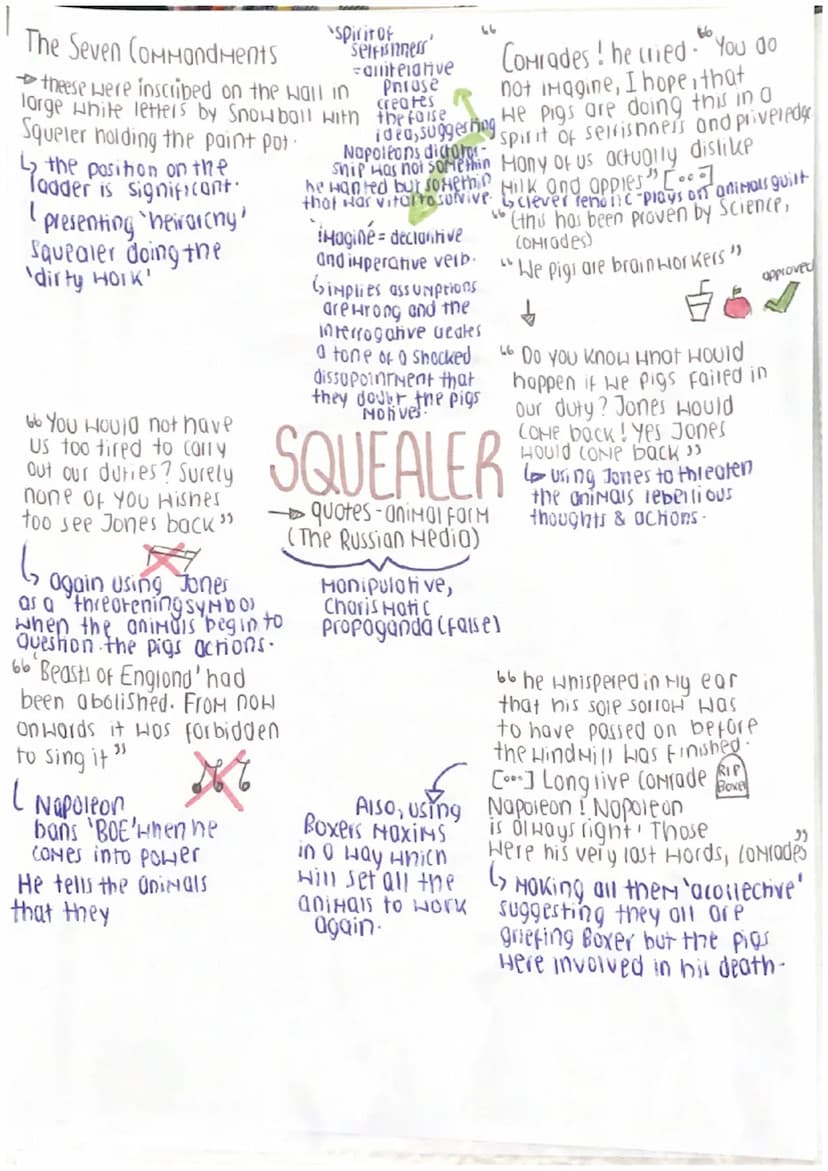 The Seven Commandments
→ theese were inscribed on the wall in
large white letters by Snowball with
Squeler holding the paint pot.
↳ the position on the
ladder is significant.
presenting 'heirarchy'
Squealer doing the
'dirty work'
'spirit of
selfishness'
= alliterative
phrase
creates
the false
idea, suggesting
Napoleons dictator-
ship was not somethin
he wanted but somethin
that was vital to survive.
'imagine' = declaritive
and imperative verb.
↳ implies assumptions
are wrong and the
interrogative creates
a tone of a shocked
dissapointment that
they doubt the pigs
motives.
"
Comrades! he cried. "You do
not imagine, I hope, that
we pigs are doing this in a
spirit of selfishness and priveledge
Many of us actually dislike
milk and apples" [...]
↳ clever rehtoric - plays on animals guilt
"(this has been proven by Science,
comrades)
"We pigs are brainworkers"
approved
"Do you know what would
happen if we pigs failed in
our duty? Jones would
come back! Yes Jones
would come back"
↳ using Jones to threaten
the animals rebellious
thoughts & actions.
"You would not have
us too tired to carry
out our duties? Surely
none of you wishes
too see Jones back"
↳ again using Jones
as a threatening symbol
when the animals begin to
question the pigs actions.
SQUEALER
→ quotes - animal farm
(The Russian Media)
Manipulative,
Charismatic
Propaganda (false)
"'Beasts of England' had
been abolished. From now
onwards it was forbidden
to sing it"
Napoleon
bans 'BOE' when he
comes into power
He tells the animals
that they
Also, using
Boxers maxims
in a way which
will set all the
animals to work
again.
"he whispered in my ear
that his sole sorrow was
to have passed on before
the windmill was finished.
[...] Long live Comrade
RIP
Boxer
Napoleon! Napoleon
is always right! Those
were his very last words, comrades"
↳ making all them 'a collective'
suggesting they all are
griefing Boxer but the pigs
were involved in his death.